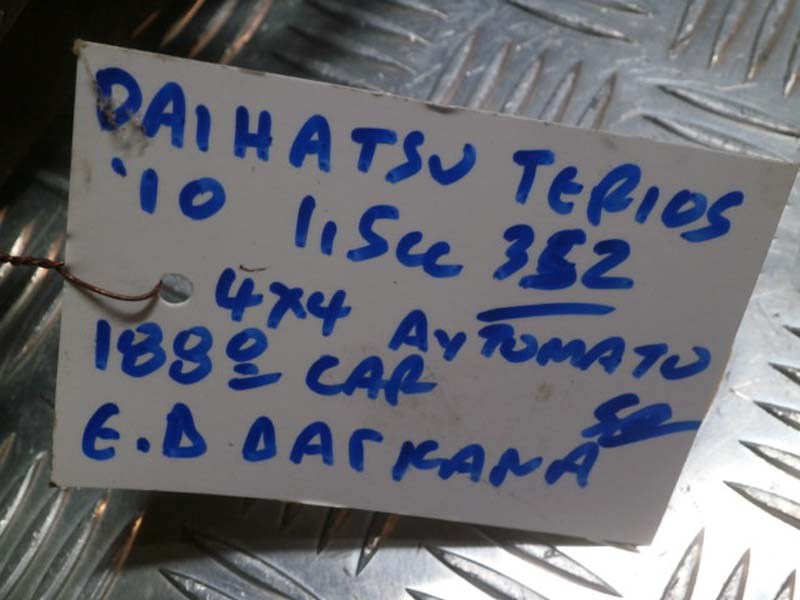 DAIHATSU TERIOS
'10 1,5cc 352
4x4 AYTOMATO
188º CAR
E.Δ ΔΑΓKANA